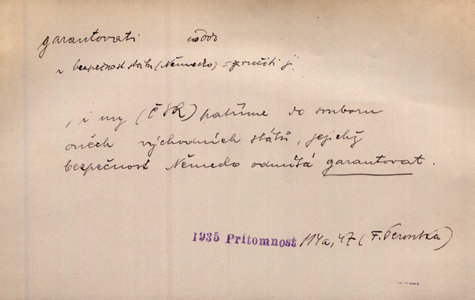 garantovati
bezpečnost státu (Německo)
, i my (ČSR) patříme do souboru
oněch východních států, jejichž
bezpečnost Německo odmítá garantovat.
1935 Přítomnost 114a, 47 (F. Peroutka)